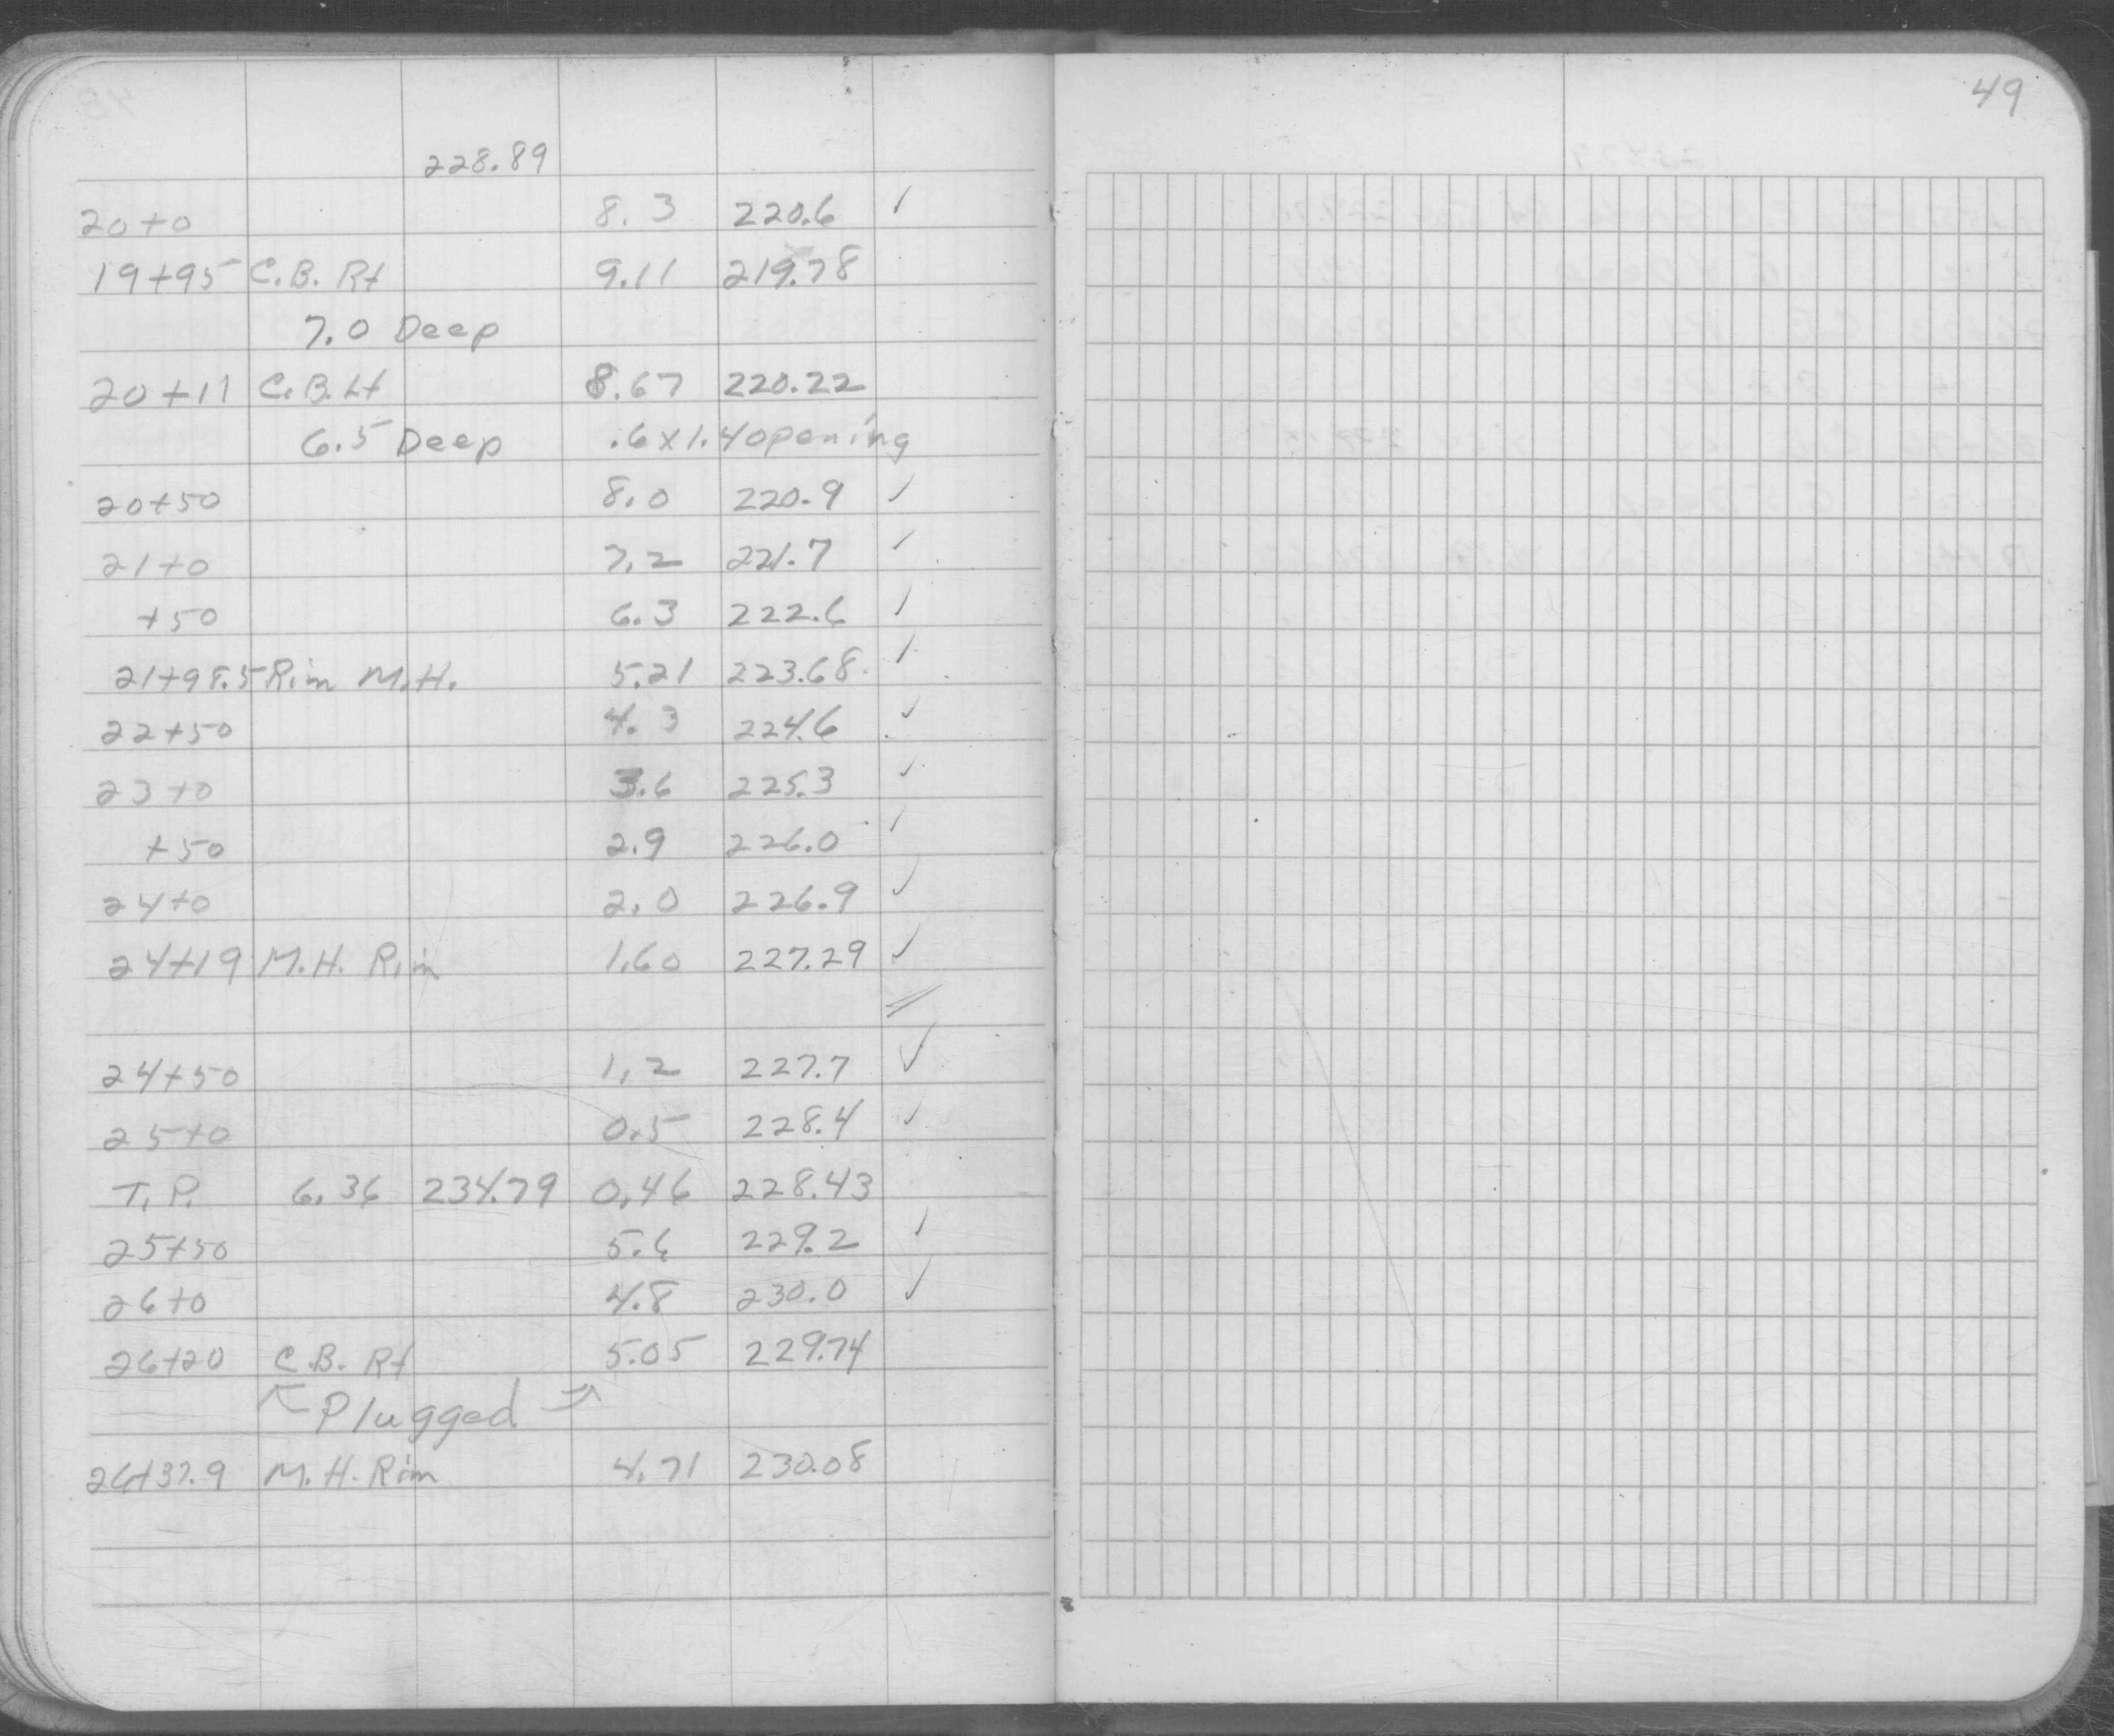 49
228.89
20+0 8.3 220.6 ✓
19+95 C.B. Rt 9.11 219.78
7.0 Deep
20+11 C.B. Lt 8.67 220.22
6.5 Deep .6x1.4 opening
20+50 8.0 220.9 ✓
21+0 7.2 221.7 ✓
+50 6.3 222.6 ✓
21+98.5 Rim M.H. 5.21 223.68 ✓
22+50 4.3 224.6 ✓
23+0 3.6 225.3 ✓
+50 2.9 226.0 ✓
24+0 2.0 226.9 ✓
24+19 M.H. Rim 1.60 227.29 ✓
24+50 1.2 227.7 ✓
25+0 0.5 228.4 ✓
T.P. 6.36 234.79 0.46 228.43
25+50 5.6 229.2 ✓
26+0 4.8 230.0 ✓
26+20 C.B. Rt 5.05 229.74
Plugged
26+37.9 M.H. Rim 4.71 230.08